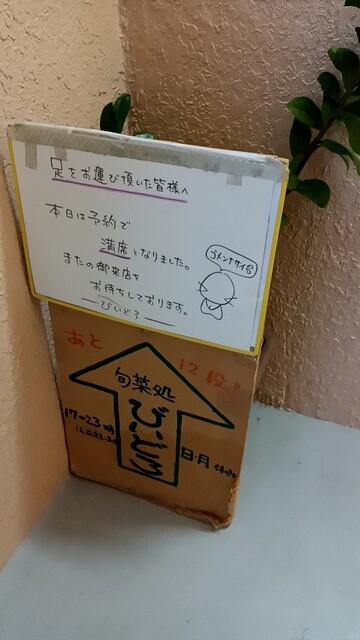 足をお運び頂いた皆様へ
本日は予約で
満席となりました。
またの御来店を
お待ちしております。
びいどろ
ゴメンナサイ
あと
12段。
旬菜処
びいどろ
17-23時
日・月